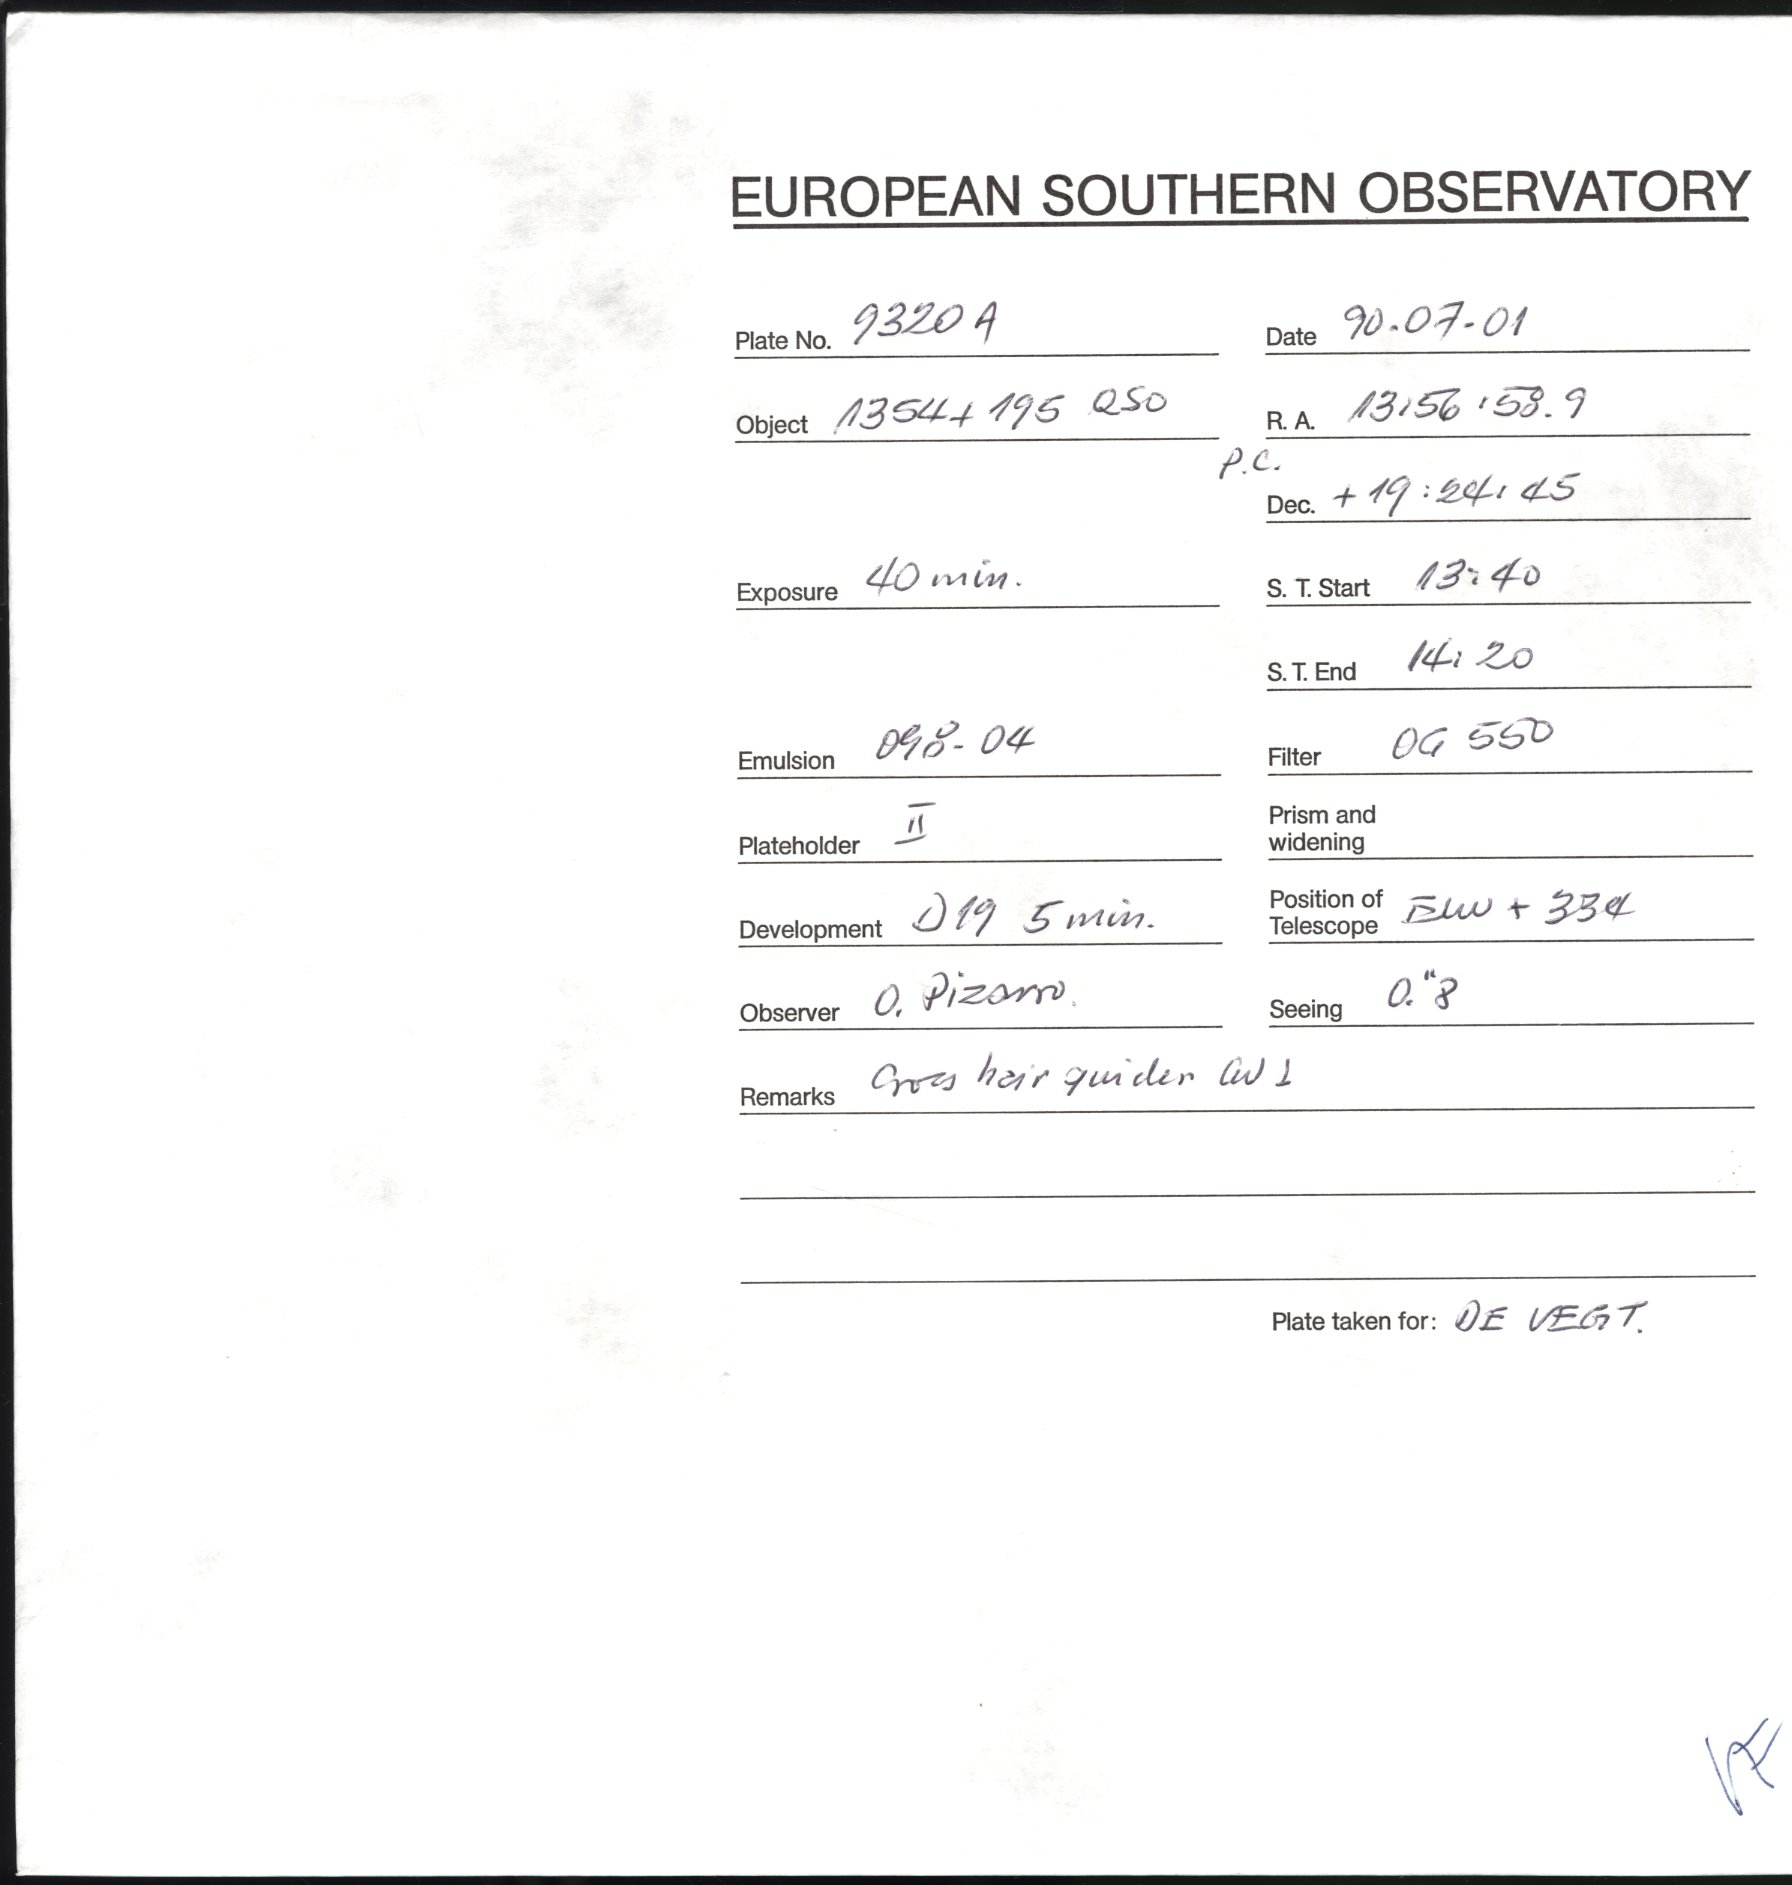 EUROPEAN SOUTHERN OBSERVATORY
Plate No. 9320 A
Date 90.07-01
Object 1354+195 QSO
R. A. 13:56:58.9
P.C.
Dec. +19:24:45
Exposure 40 min.
S. T. Start 13:40
S. T. End 14:20
Emulsion 098-04
Filter OG 550
Plateholder II
Prism and
widening
Development D19 5 min.
Position of
Telescope + 334
Observer O. Pizarro.
Seeing 0."8
Remarks Cross hair guider
Plate taken for: DE VEGT.